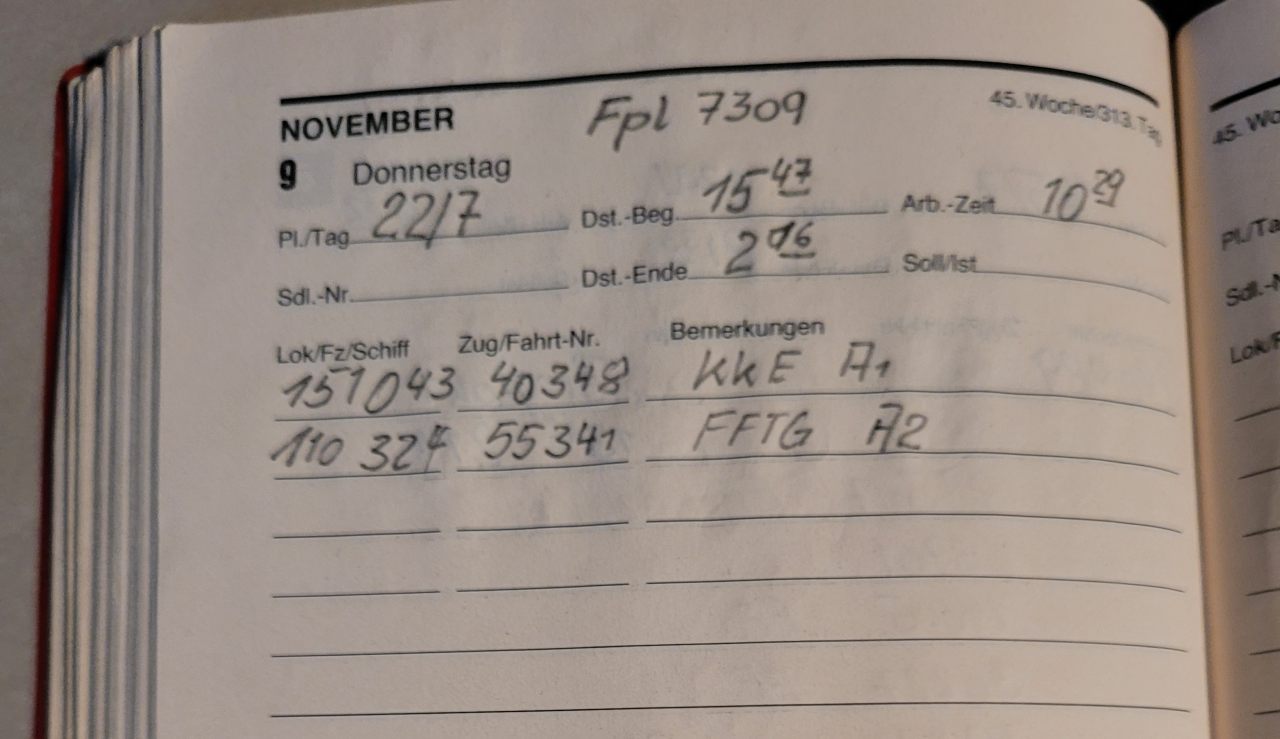 NOVEMBER Fpl 7309 45. Woche/313. Tag
9 Donnerstag
Pl./Tag 22/7 Dst.-Beg. 15 47 Arb.-Zeit 10 29
Sdl.-Nr. Dst.-Ende 2 16 Soll/Ist
Lok/Fz/Schiff Zug/Fahrt-Nr. Bemerkungen
151043 40348 KKE A1
110 324 55341 FFTG A2
45. Wo
Pl./Ta
Sdl.-N
Lok/F